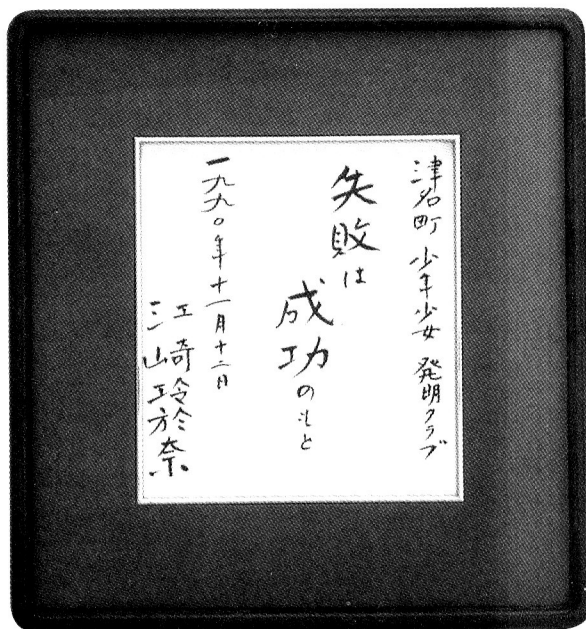 津名町 少年少女 発明クラブ
失敗は
成功のもと
一九九〇年十一月十二日
江崎玲於奈